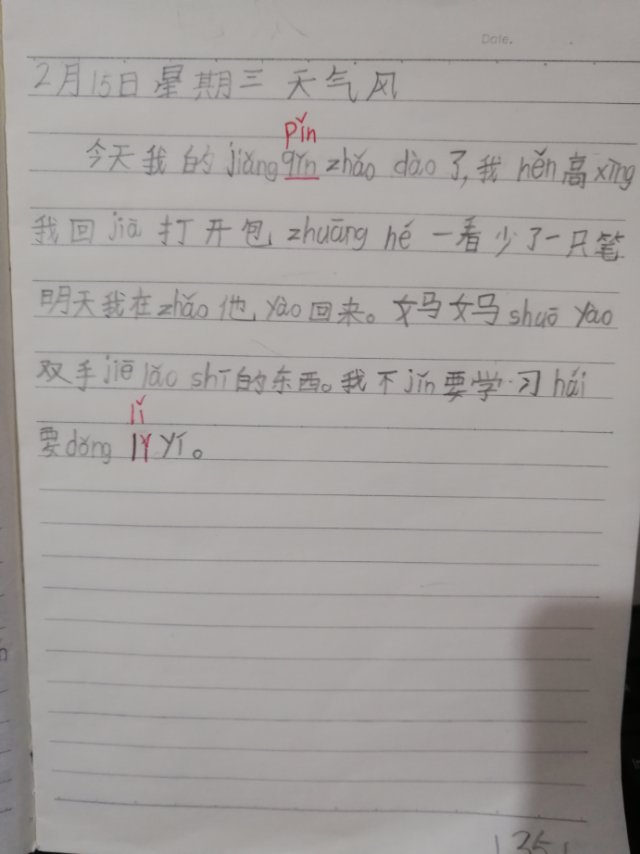 Date.
2月15日星期三 天气风
pǐn
今天我的jiǎng qǐn zhǎo dào了,我 hěn高xìng
我回jiā 打开包, zhuāng hé 一看少了一只笔
明天我在zhǎo他,yào回来。妈妈shuō yào
双手jiē lǎo shī的东西。我不jǐn要学习hái
lǐ
要dǒng lǐ yí。